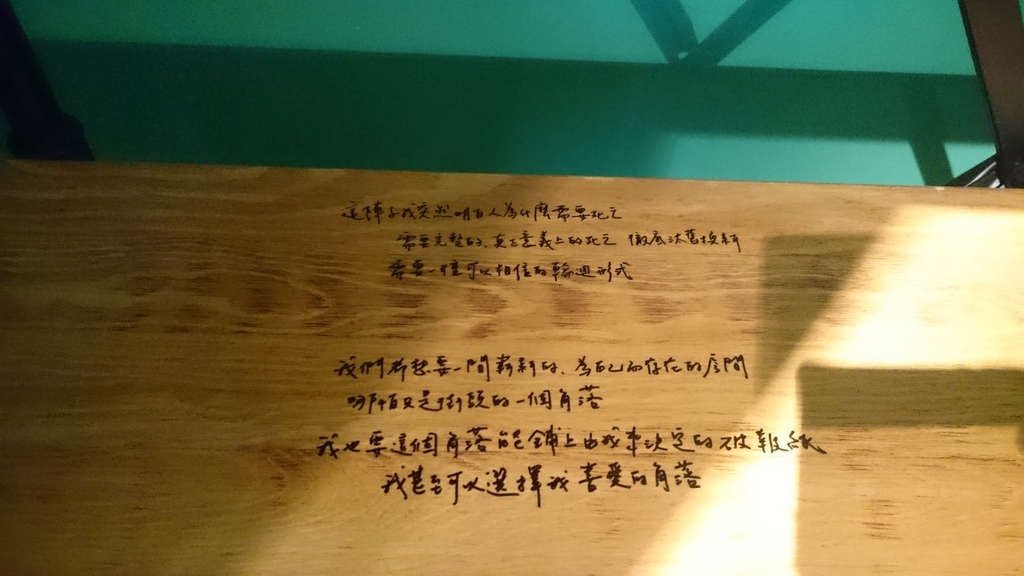 這陣子我突然明白人為什麼需要死亡
需要完整的、真正意義上的死亡 徹底汰舊換新
需要一種可以相信的輪迴形式
我們都想要一間嶄新的、為自己而存在的房間
哪怕只是街頭的一個角落
我也要這個角落能鋪上由我來決定的破報紙
我甚至可以選擇我喜愛的角落